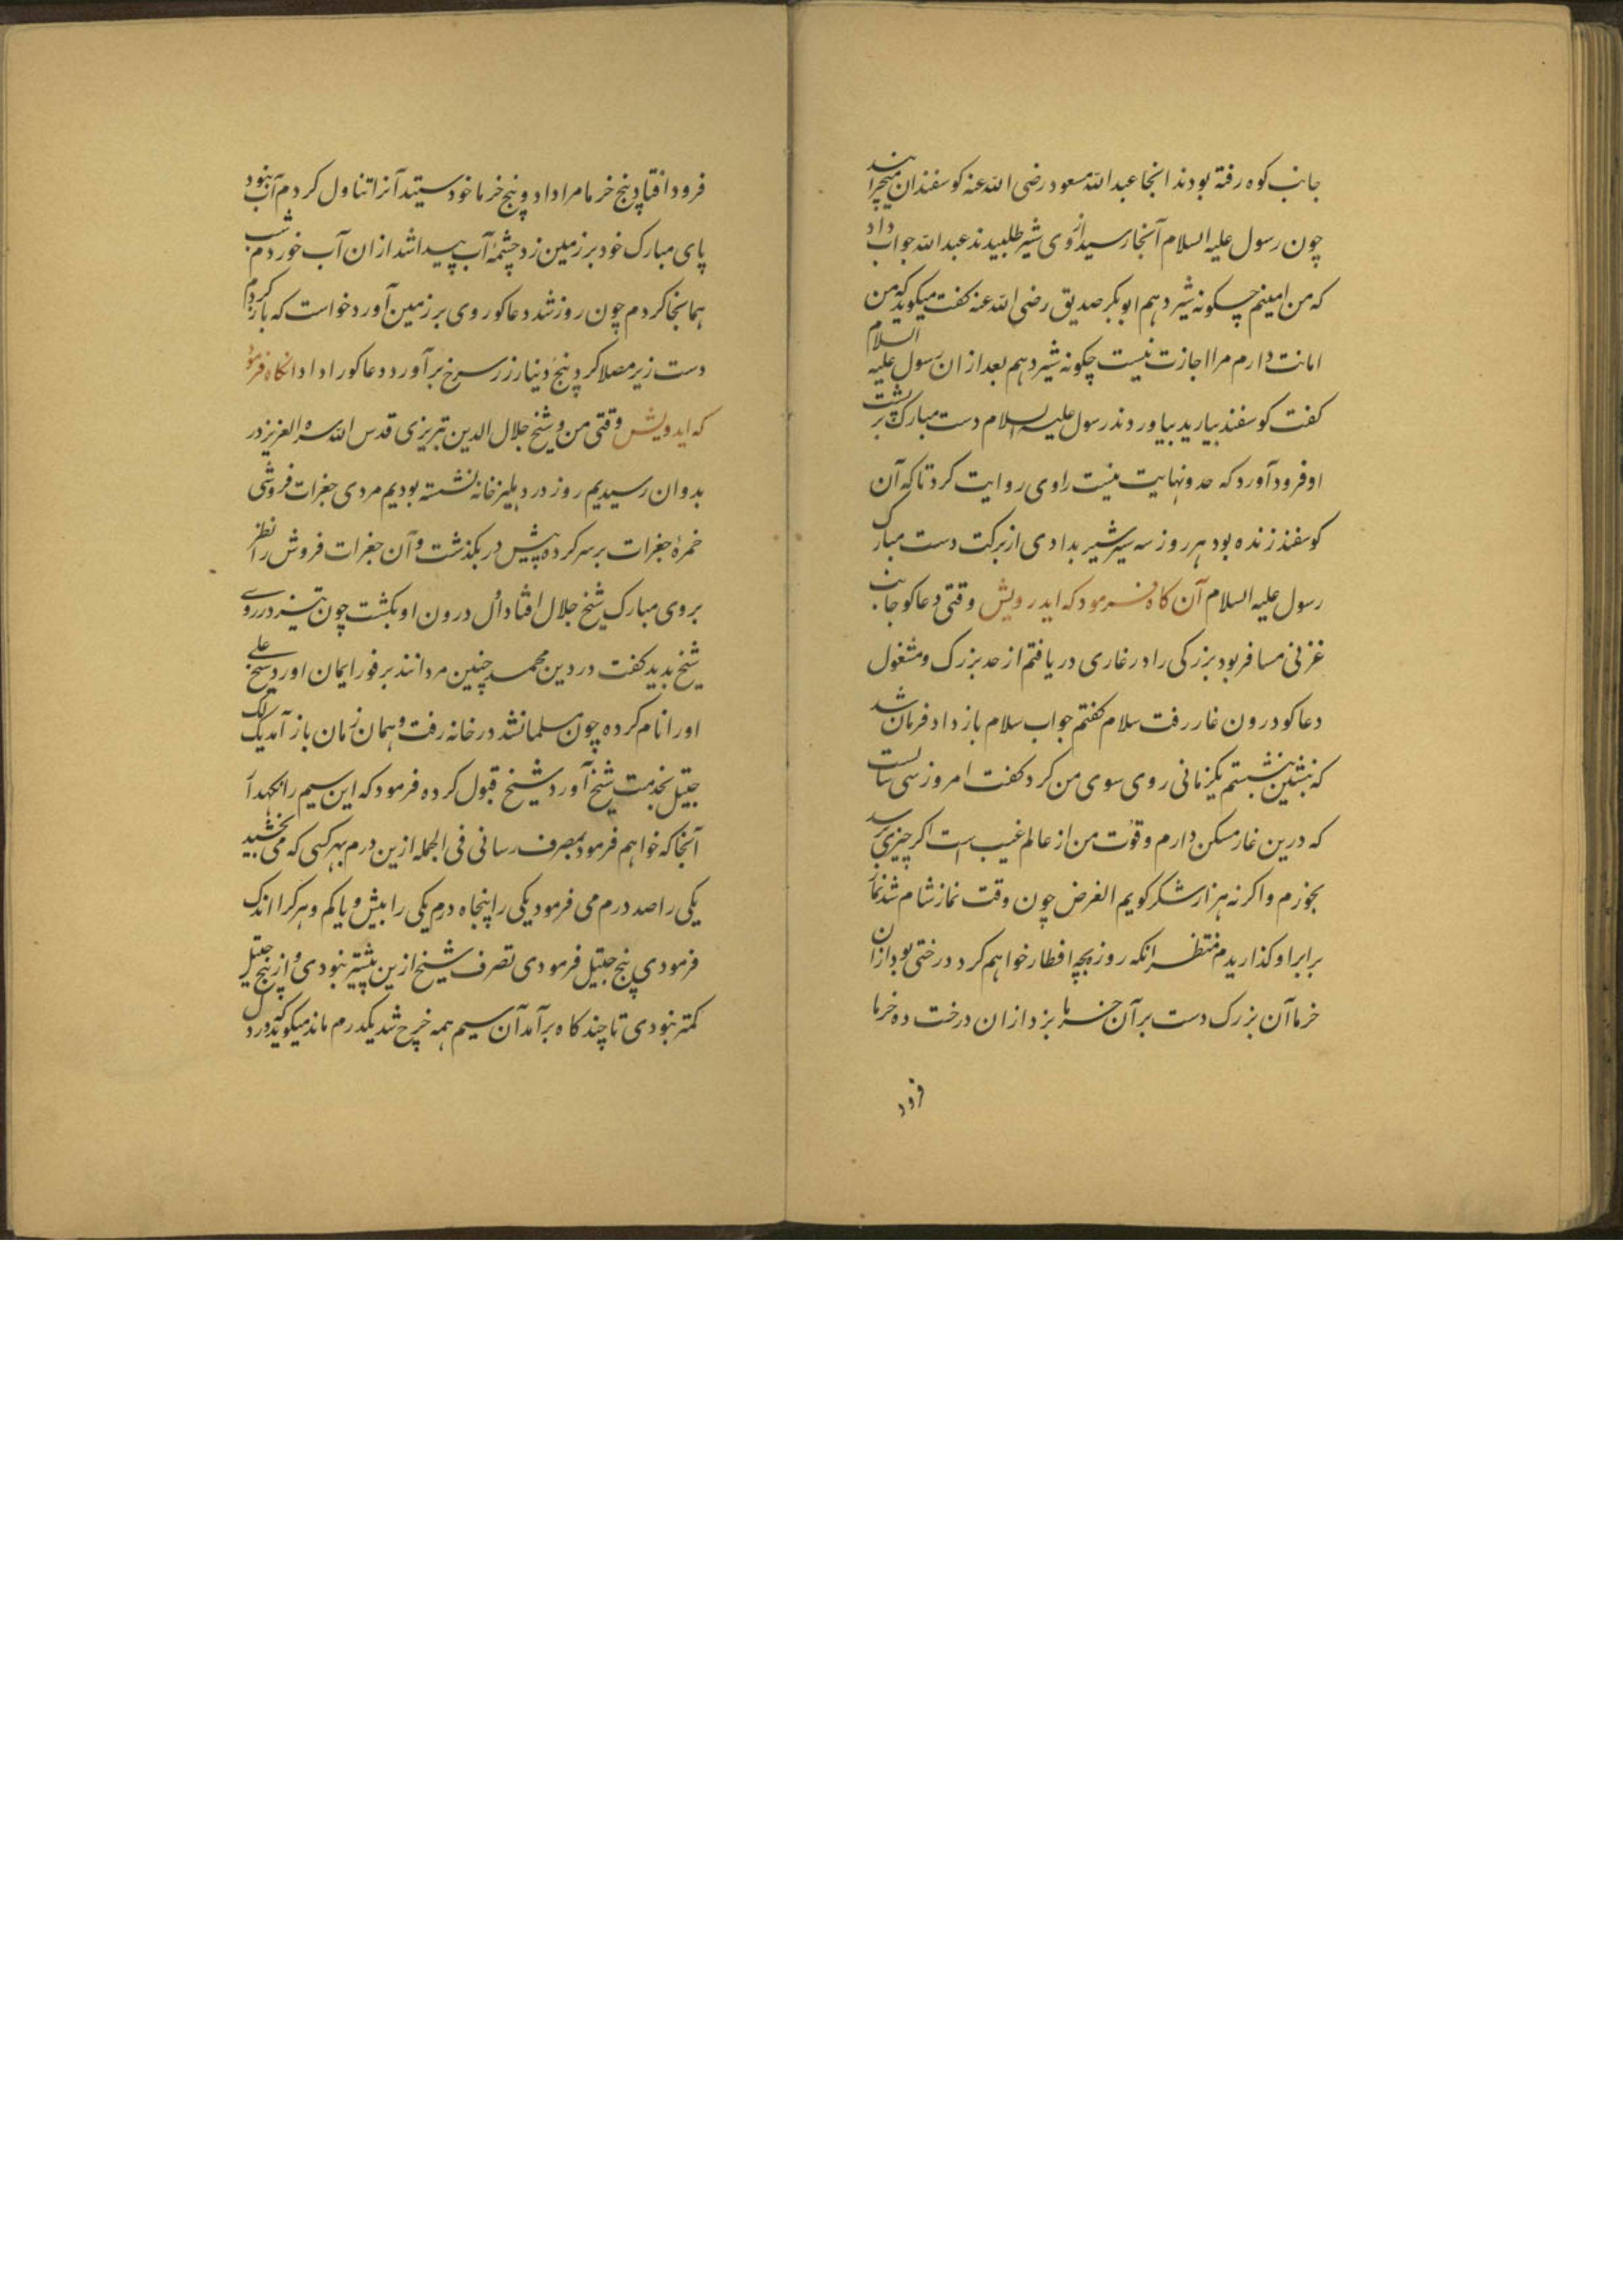 جانب کوه رفته بودند انجا عبد الله مسعود رضی الله عنه کوسفندان میچرانید
چون رسول علیه السلام آنجا رسید ازوی شیر طلبیدند عبد الله جواب داد
که من امینم چکونه شیر دهم ابوبکر صدیق رضی الله عنه کفت میکوید که من
امانت دارم مرا اجازت نیست چکونه شیر دهم بعد ازان رسول علیه السلام
کفت کوسفند بیارید بیاوردند رسول علیه السلام دست مبارک بر پشت
او فرود آورد که حد و نهایت نیست راوی روایت کرد تا که آن
کوسفند زنده بود هر روز سه سیر شیر بدادی از برکت دست مبارک
رسول علیه السلام آن کاه فرمود که ایدرویش وقتی دعاکو جانب
غزنی مسافر بود بزرکی را در غاری دریافتم از حد بزرک و مشغول
دعاکو درون غار رفت سلام کفتم جواب سلام باز داد فرمان شد
که بنشین بنشستم یکزمانی روی سوی من کرد کفت امروز سی سالست
که درین غار مسکن دارم و قوت من از عالم غیب است اکر چیزی برسد
بخورم و اکر نه هزار شکر کویم الغرض چون وقت نماز شام شد نماز
برابر او کذاریدم منتظر انکه روزه بچه افطار خواهم کرد درختی بود ازان
خرما آن بزرک دست بر آن خرما بزد ازان درخت ده خرما
فرود
فرود افتاد پنج خرما مرا داد و پنج خرما خود ستید آنرا تناول کردم آب نبود
پای مبارک خود بر زمین زد چشمهٔ آب پیدا شد ازان آب خوردم شب
همانجا کردم چون روز شد دعاکو روی بر زمین آورد خواست که باز کردم
دست زیر مصلا کرد پنج دینار زر سرخ برآورد دعاکو را داد انکاه فرمود
که ایدرویش وقتی من و شیخ جلال الدین تبریزی قدس الله سره العزیز در
بدوان رسیدیم روز در دهلیز خانه نشسته بودیم مردی جغرات فروشی
خمرهٔ جغرات بر سر کرده پیش در بکذشت و آن جغرات فروش را نظر
بروی مبارک شیخ جلال افتاد دل درون او بکشت چون تیز در روی
شیخ بدید کفت در دین محمد چنین مردانند بر فور ایمان اورد شیخ علی
اورا نام کرده چون مسلمان شد در خانه رفت و همان زمان باز آمد یک لک
جیتل بخدمت شیخ آورد شیخ قبول کرده فرمود که این سیم را نکهدار
آنجا که خواهم فرمود بمصرف رسانی فی الجمله ازین درم بهر کسی که می بخشید
یکی را صد درم می فرمود یکی را پنجاه درم یکی را بیش و یا کم و هر کرا اندک
فرمودی پنج جیتل فرمودی تصرف شیخ ازین بیشتر نبودی و از پنج جیتل
کمتر نبودی تا چند کاه برآمد آن سیم همه خرچ شد یکدرم ماند میکوید که در دل